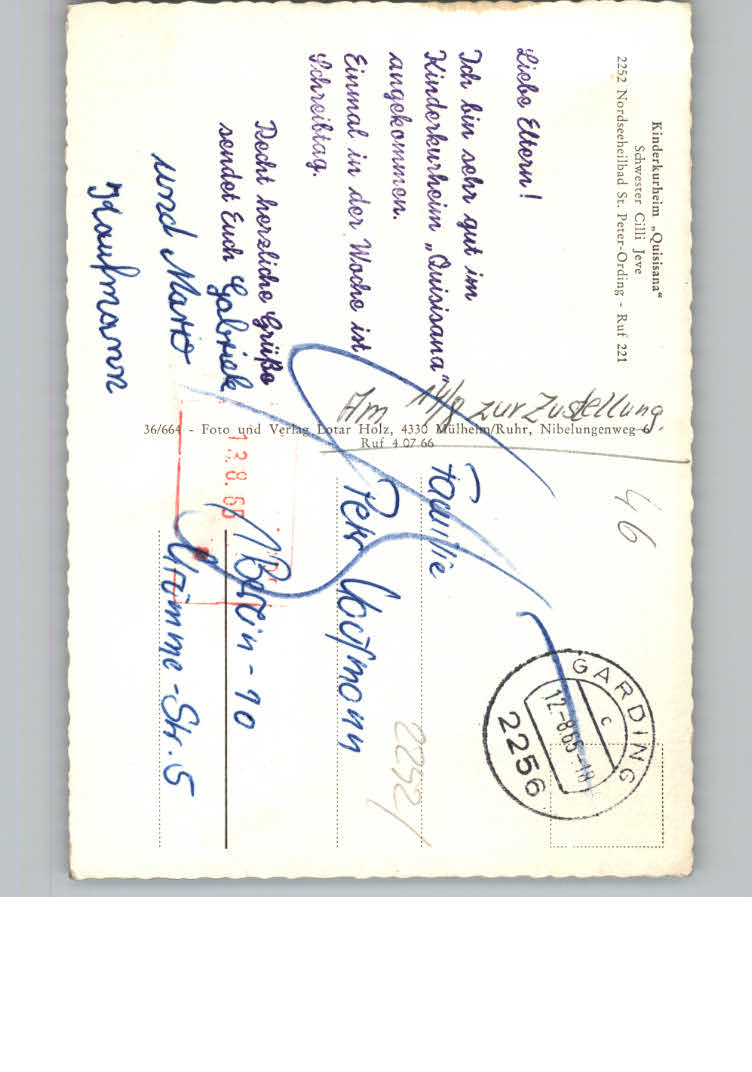 Kinderkurheim „Quisisana“
Schwester Cilli Jeve
2252 Nordseeheilbad St. Peter-Ording - Ruf 221
Liebe Eltern!
Ich bin sehr gut im
Kinderkurheim „Quisisana“
angekommen.
Einmal in der Woche ist
Schreibtag.
Recht herzliche Grüße
sendet Euch Gabriele
und Mario
Kaufmann
Am 14/8 zur Zustellung.
36/664 - Foto und Verlag Lotar Holz, 4330 Mülheim/Ruhr, Nibelungenweg 6
Ruf 4 07 66
46
GARDING
c
12.-8.65-18
2256
Familie
Peter
2252/
1 Berlin-10
Krumme-Str. 5
13.8.65